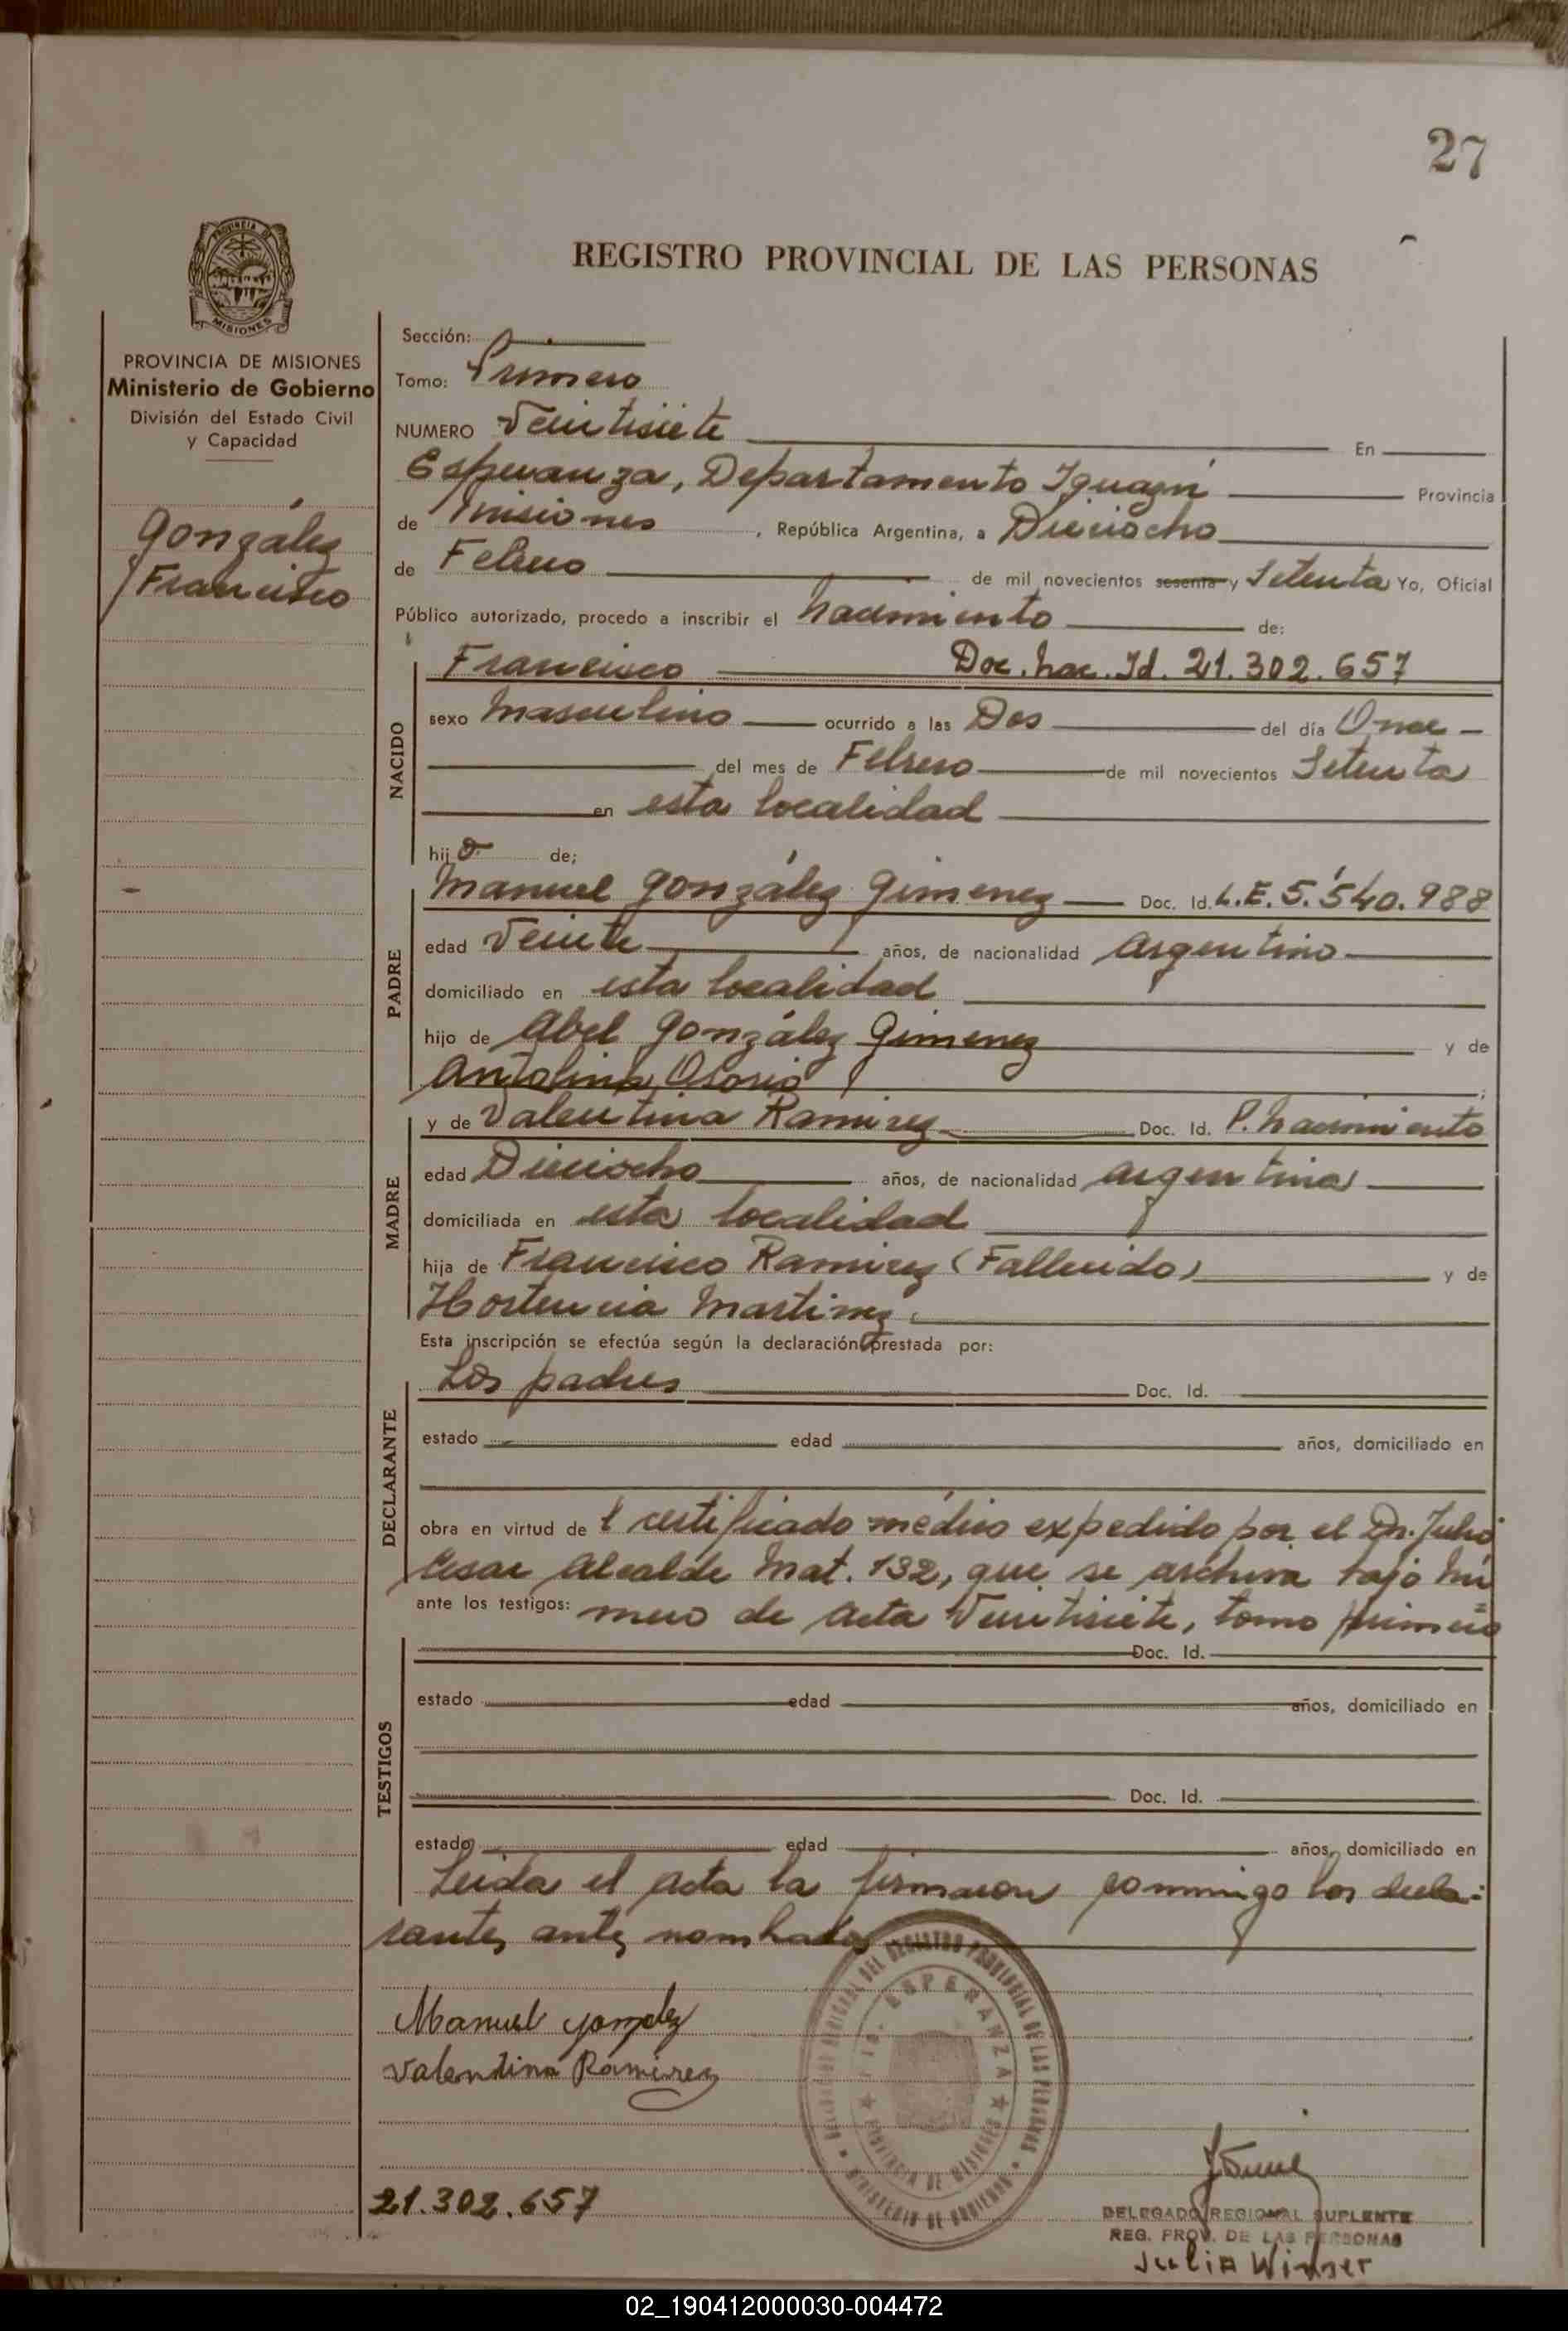 27
PROVINCIA DE
MISIONES
REGISTRO PROVINCIAL DE LAS PERSONAS
PROVINCIA DE MISIONES
Ministerio de Gobierno
División del Estado Civil
y Capacidad
González
Francisco
Sección:
Tomo: Primero
NUMERO Veintisiete En
Esperanza, Departamento Iguazú Provincia
de Misiones, República Argentina, a Dieciocho
de Febrero de mil novecientos sesenta y Setenta Yo, Oficial
Público autorizado, procedo a inscribir el nacimiento de:
NACIDO
Francisco Doc. Nac. Id. 21.302.657
sexo Masculino ocurrido a las Dos del día Once
del mes de Febrero de mil novecientos Setenta
en esta localidad
hijo de;
PADRE
Manuel González Gimenez Doc. Id. L.E. 5.540.988
edad Veinte años, de nacionalidad argentino
domiciliado en esta localidad
hijo de Abel González Gimenez y de
Antolina Osorio;
MADRE
y de Valentina Ramirez Doc. Id. P. Nacimiento
edad Dieciocho años, de nacionalidad argentina
domiciliada en esta localidad
hija de Francisco Ramirez (Fallecido) y de
Hortencia Martinez.
Esta inscripción se efectúa según la declaración prestada por:
DECLARANTE
Los padres Doc. Id.
estado edad años, domiciliado en
obra en virtud de 1 certificado médico expedido por el Dr. Julio
Cesar Alcalde Mat. 132, que se archiva bajo nú
ante los testigos: mero de acta Veintisiete, tomo primero
TESTIGOS
Doc. Id.
estado edad años, domiciliado en
Doc. Id.
estado edad años, domiciliado en
Leida el acta la firmaron conmigo los decla-
rantes antes nombrados
Manuel Gonzalez
Valentina Ramirez
DELEGACION REGIONAL DEL REGISTRO PROVINCIAL DE LAS PERSONAS
MINISTERIO DE GOBIERNO
PTO. ESPERANZA
PROVINCIA DE MISIONES
21.302.657
DELEGADO REGIONAL SUPLENTE
REG. PROV. DE LAS PERSONAS
Julia Winner
02_190412000030-004472